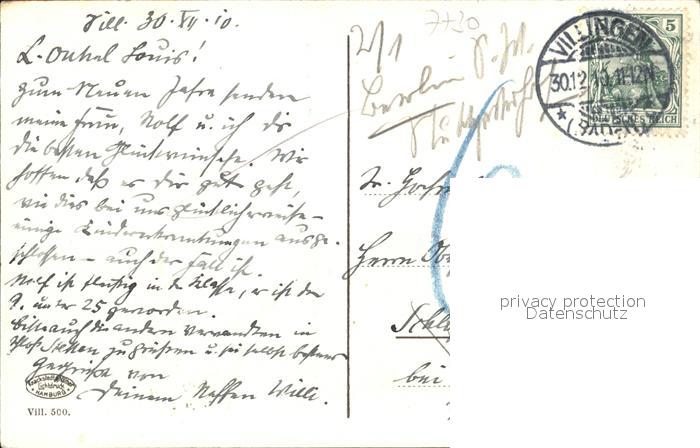 Vill. 30.XII.10.
L. Onkel Louis!
Zum Neuen Jahre senden
meine Frau, Rolf u. ich dir
die besten Glückwünsche. Wir
hoffen daß es dir gut geht,
wie dies bei uns glücklicherweise –
einige Kindererkrankungen ausge-
schlossen – auch der Fall ist.
Rolf ist fleißig in d. Klasse, er ist der
9. unter 25 geworden.
Bitte auch die andern Verwandten in
Schloß Stetten zu grüßen u. sei selbst bestens
Gegrüßt von
Deinem Neffen Willi.
HAMBURG
Vill. 500.
7+30
2/1
Berlin S.W.
Herrn
bei
5
DEUTSCHES REICH
VILLINGEN
30.12.10.11-12N
(BADEN)
privacy protection
Datenschutz